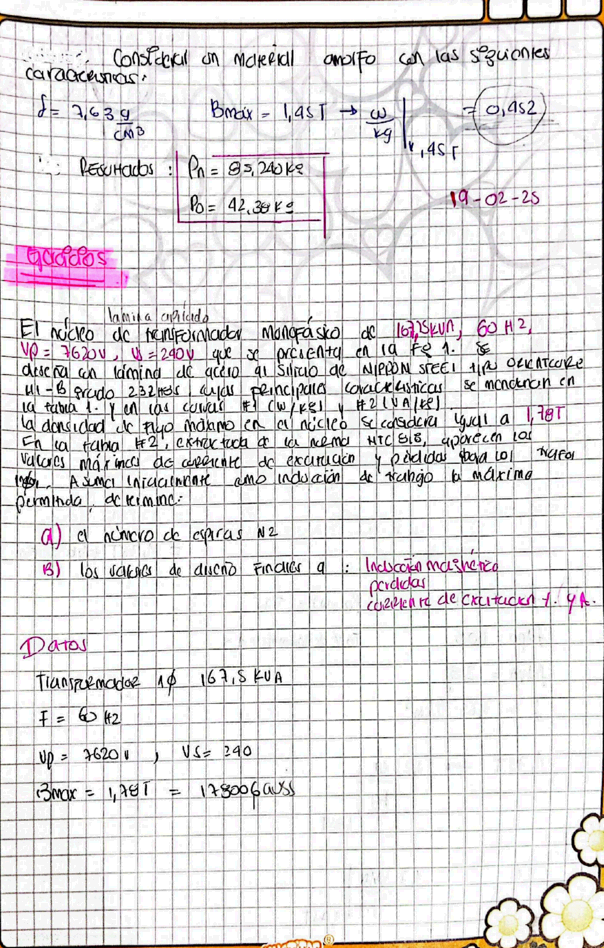 Considerar un material amorfo con las siguientes
características:
δ = 7,63 g/cm3   Bmáx = 1,45T → w/kg | 1,45T = 0,452
Resultados: Pn = 85,240 kg
Po = 42,38 kg
19-02-25
lamina apilado
El núcleo de transformador Monofásico de 167,5KVA, 60 Hz,
VP = 7620V, Vs = 240V que se presenta en la Fg 1. Se
diseña con lámina de acero al silicio de NIPPON STEEL tipo ORIENTCORE
HI-B grado 23ZH85, cuyas principales características se mencionan en
la tabla 1. y en las curvas #1 (W/kg) y #2 (VA/kg)
La densidad de flujo máximo en el núcleo se considera igual a 1,78T
En la tabla #2, extractada de la norma NTC 818, aparecen los
valores máximos de corriente de excitación y pérdidas para los trafos
Asuma inicialmente como inducción de trabajo la máxima
permitida, determine:
a) el número de espiras N2
B) los valores de diseño Finales a: Inducción magnética
perdidas
corriente de excitación %. y A.
Datos
Transformador 1ϕ 167,5 KVA
F = 60 Hz
Vp = 7620 V , Vs = 240
Bmax = 1,78T = 17800 Gauss